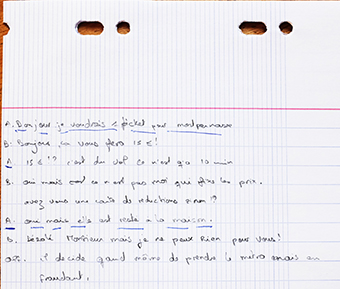 A. Bonjour je voudrais 1 ticket pour montparnasse
B: Bonjour, ca vous fera 15 € !
A. 15 € !? c'est du vol ce n'est qu'a 10 min
B. oui mais ce n'est pas moi qui fixe les prix.
avez vous une carte de reductions sinon !?
A. oui mais elle est reste a la maison.
B. Désolé Monsieur mais je ne peux Rien pour vous!
il decide quand même de prendre le métro mais en
fraudant.